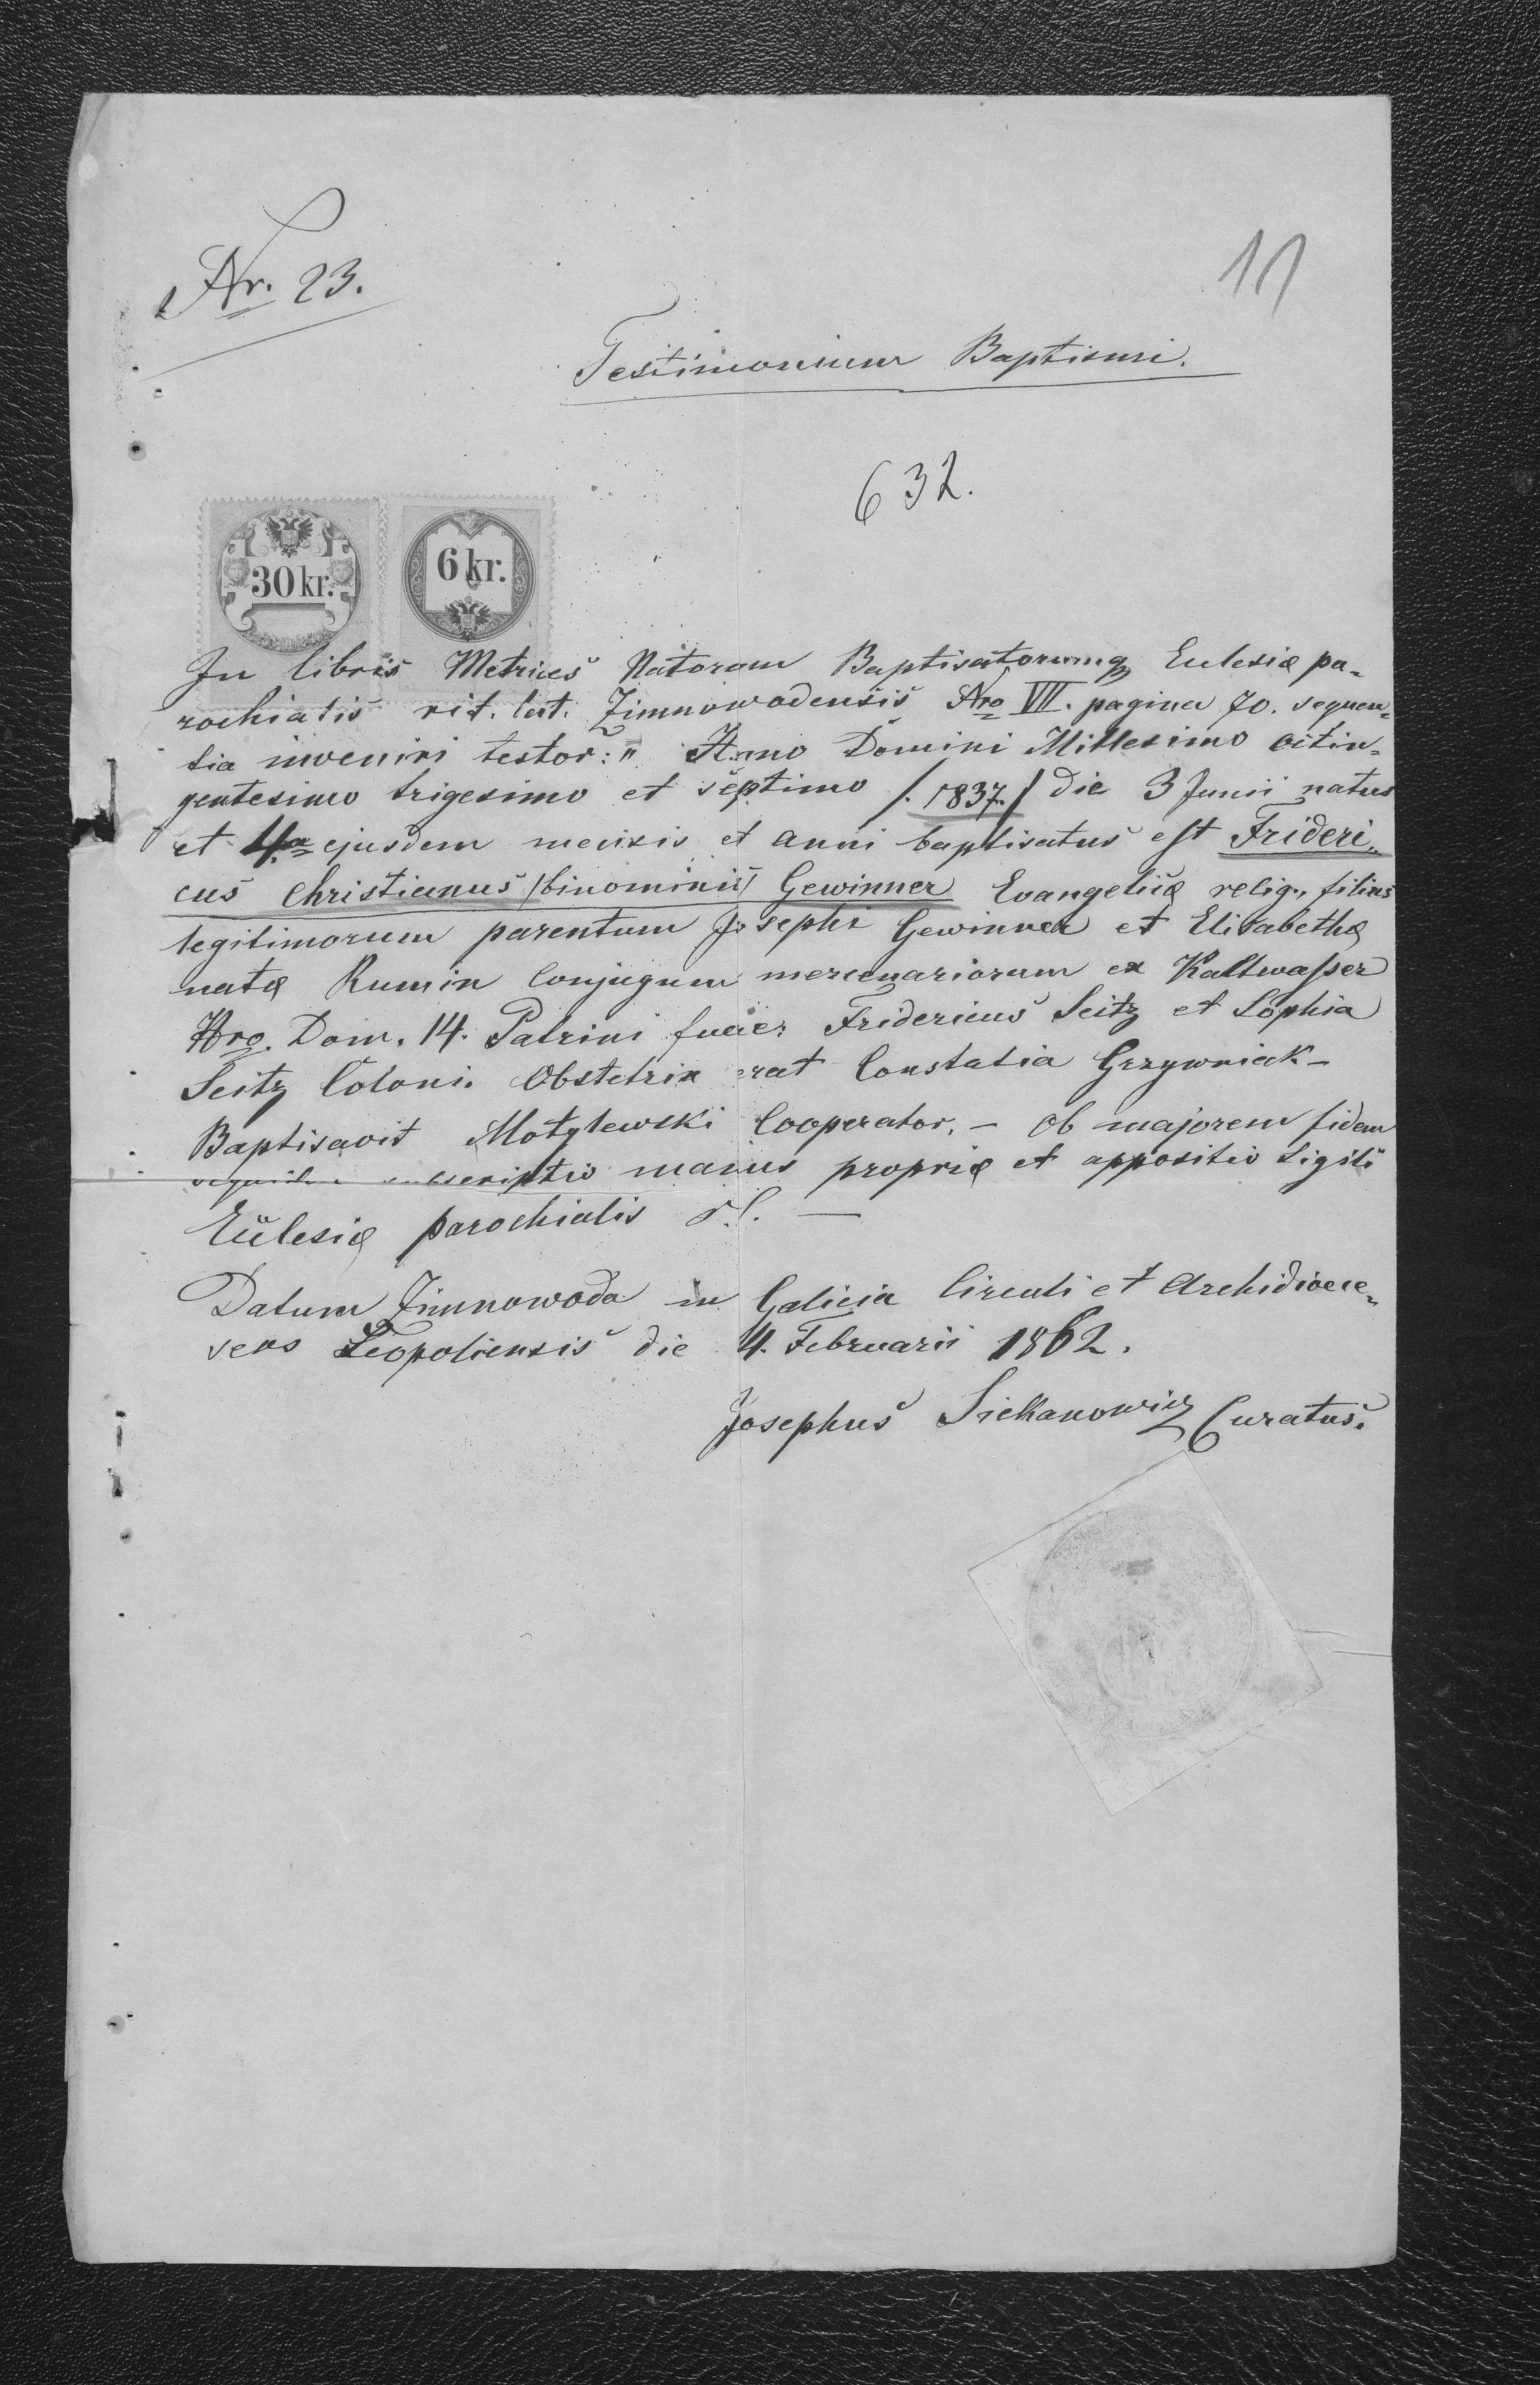 Nr. 23.
11
Testimonium Baptismi.
632.
30 kr. 6 kr.
In libris Metrices Natorum Baptisatorumq Eclesiæ pa-
rochialis rit. lat. Zimnowodensis Nro VII. pagina 70. sequen-
tia inveniri testor: " Anno Domini Millesimo octin-
gentesimo trigesimo et septimo /. 1837./ die 3 Junii natus
et 4ta ejusdem mensis et anni baptisatus est Frideri-
cus Christianus /binominis/ Gewinner Evangelicæ relig., filius
legitimorum parentum Josephi Gewinner et Elisabethæ
natæ Rumin Conjugum mercenariorum ex Kaltwasser
Nro. Dom. 14. Patrini fuere: Fridericus Seitz et Sophia
Seitz Coloni. Obstetrix erat Constatia Grzywniak -
Baptisavit Motylewski Cooperator. - Ob majorem fidem
subscriptio manus propriæ et appositio Sigili
Eclesiæ parochialis r.l. —
Datum Zimnowoda in Galicia Circuli et Archidioece-
seos Leopoliensis die 4. Februarii 1862.
Josephus Siekanowicz Curatus.